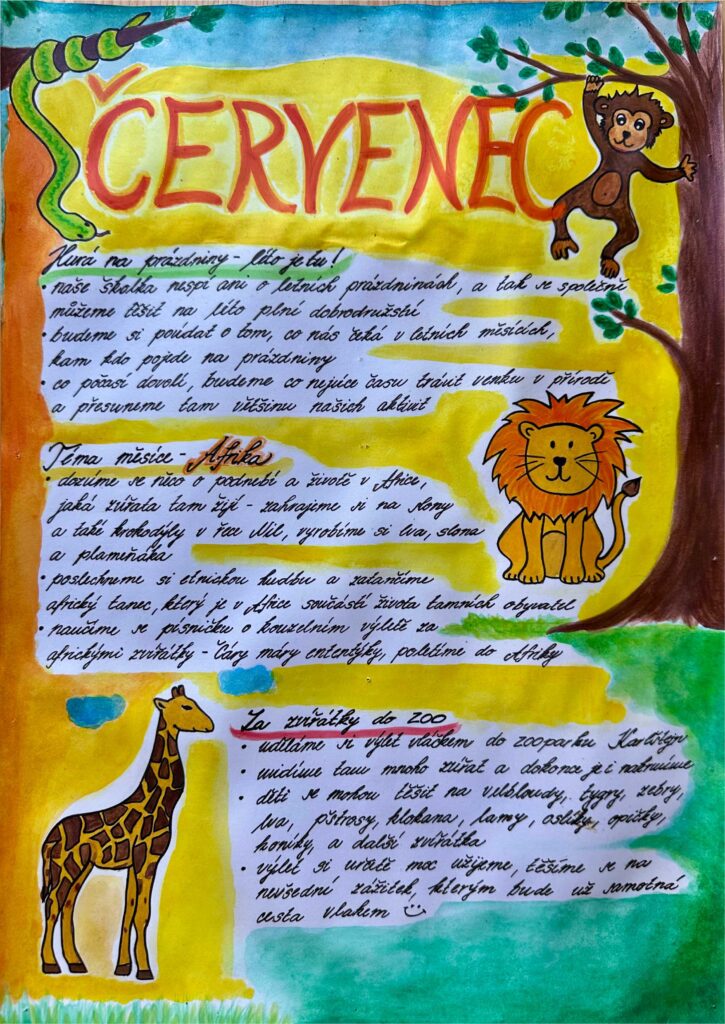 ČERVENEC
Hurá na prázdniny - léto je tu!
• naše školka nespí ani o letních prázdninách, a tak se společně
můžeme těšit na léto plné dobrodružství
• budeme si povídat o tom, co nás čeká v letních měsících,
kam kdo pojede na prázdniny
• co počasí dovolí, budeme co nejvíce času trávit venku v přírodě
a přesuneme tam většinu našich aktivit
Téma měsíce - Afrika
• dozvíme se něco o podnebí a životě v Africe,
jaká zvířata tam žijí - zahrajeme si na slony
a také krokodýly v řece Nil, vyrobíme si lva, slona
a plameňáka
• poslechneme si etnickou hudbu a zatančíme
africký tanec, který je v Africe součástí života tamních obyvatel
• naučíme se písničku o kouzelném výletě za
africkými zvířátky - Čáry máry ententýky, poletíme do Afriky
Za zvířátky do ZOO
• uděláme si výlet vláčkem do zooparku
• uvidíme tam mnoho zvířat a dokonce je i nakrmíme
• děti se mohou těšit na velbloudy, tygry, zebry,
lva, pštrosy, klokana, lamy, oslíky, opičky,
koníky, a další zvířátka
• výlet si určitě moc užijeme, těšíme se na
nevšední zážitek, kterým bude už samotná
cesta vlakem